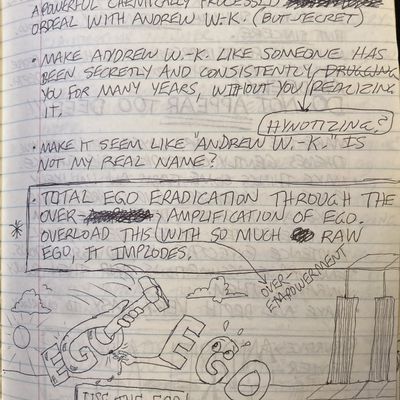 A POWERFUL CHEMICALLY PROCESSED
ORDEAL WITH ANDREW W.-K. (BUT SECRET)
• MAKE ANDREW W.-K. LIKE SOMEONE HAS
BEEN SECRETLY AND CONSISTENTLY DRUGGING
YOU FOR MANY YEARS, WITHOUT YOU REALIZING
IT.
HYNOTIZING?
• MAKE IT SEEM LIKE "ANDREW W.-K." IS
NOT MY REAL NAME?
• TOTAL EGO ERADICATION THROUGH THE
OVER- AMPLIFICATION OF EGO.
* OVERLOAD THIS WITH SO MUCH RAW
EGO, IT IMPLODES.
OVER-
EMPOWERMENT
EGO
EGO
USE THE EGO!